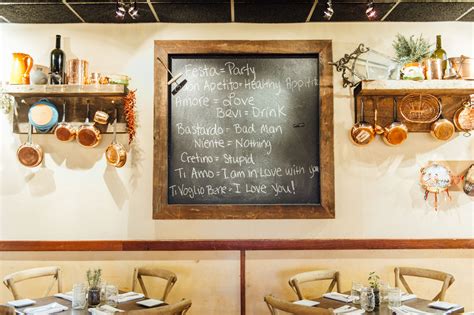 Festa = Party
Buon Apetito = Healthy Appitite
Amore = Love
Bevi = Drink
Bastardo = Bad man
Niente = Nothing
Cretino = Stupid
Ti Amo = I am in Love with you
Ti Voglio Bene = I Love You!